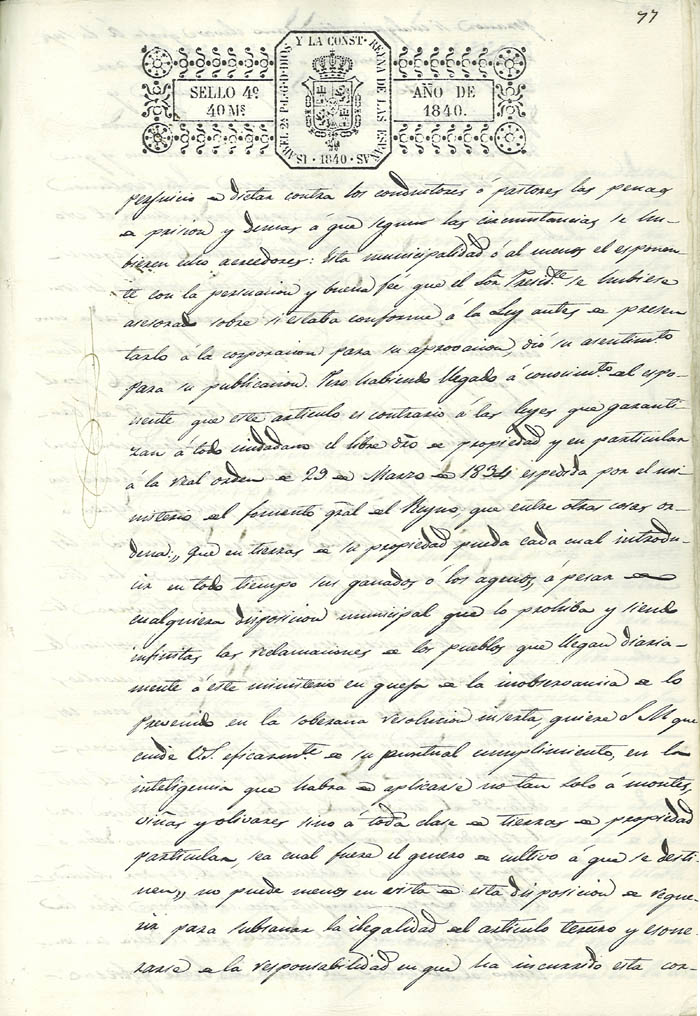 77
ISABEL 2ª P.L.G.D.DIOS Y LA CONST. REYNA DE LAS ESPAÑAS · 1840 ·
SELLO 4º
40 Ms
AÑO DE
1840.
perjuicio de dictar contra los conductores ó pastores las penas
de prision y demas á que segun las circunstancias se hu-
bieren echo acreedores: Esta municipalidad ó al menos el esponen-
te con la persuacion y buena fée que el Sor. Presidte. se hubiese
asesorado sobre si estaba conforme á la Ley antes de presen
tarlo á la corporacion para su aprovacion, dió su asentimto
para su publicacion. Pero habiendo llegado á conocimto. del espo-
nente que este articulo es contrario á las leyes que garanti-
zan á todo ciudadano el libre dro de propiedad y en particular
á la real orden de 29 de Marzo de 1834 espedida por el mi-
nisterio del fomento gral del Reyno, que entre otras cosas or-
dena: „ que en tierras de su propiedad pueda cada cual introdu-
cir en todo tiempo sus ganados o los agenos, á pesar de
cualquiera disposicion municipal que lo prohiba y siendo
infinitas las reclamaciones de los pueblos que llegan diaria-
mente á este ministerio en queja de la inobservancia de lo
prevenido en la soberana resolucion inserta, quiere S M que
cuide V.S. eficazmte. de su puntual cumplimiento, en la
inteligencia que habra de aplicarse no tan solo á montes,
viñas y olivares sino á toda clase de tierras de propiedad
particular, sea cual fuere el genero de cultivo á que se desti
nen„ no puede menos en vista de esta disposicion de reque-
rir para subsanar la ilegalidad del articulo tercero y esone-
rarse de la responsabilidad en que ha incurrido esta cor-